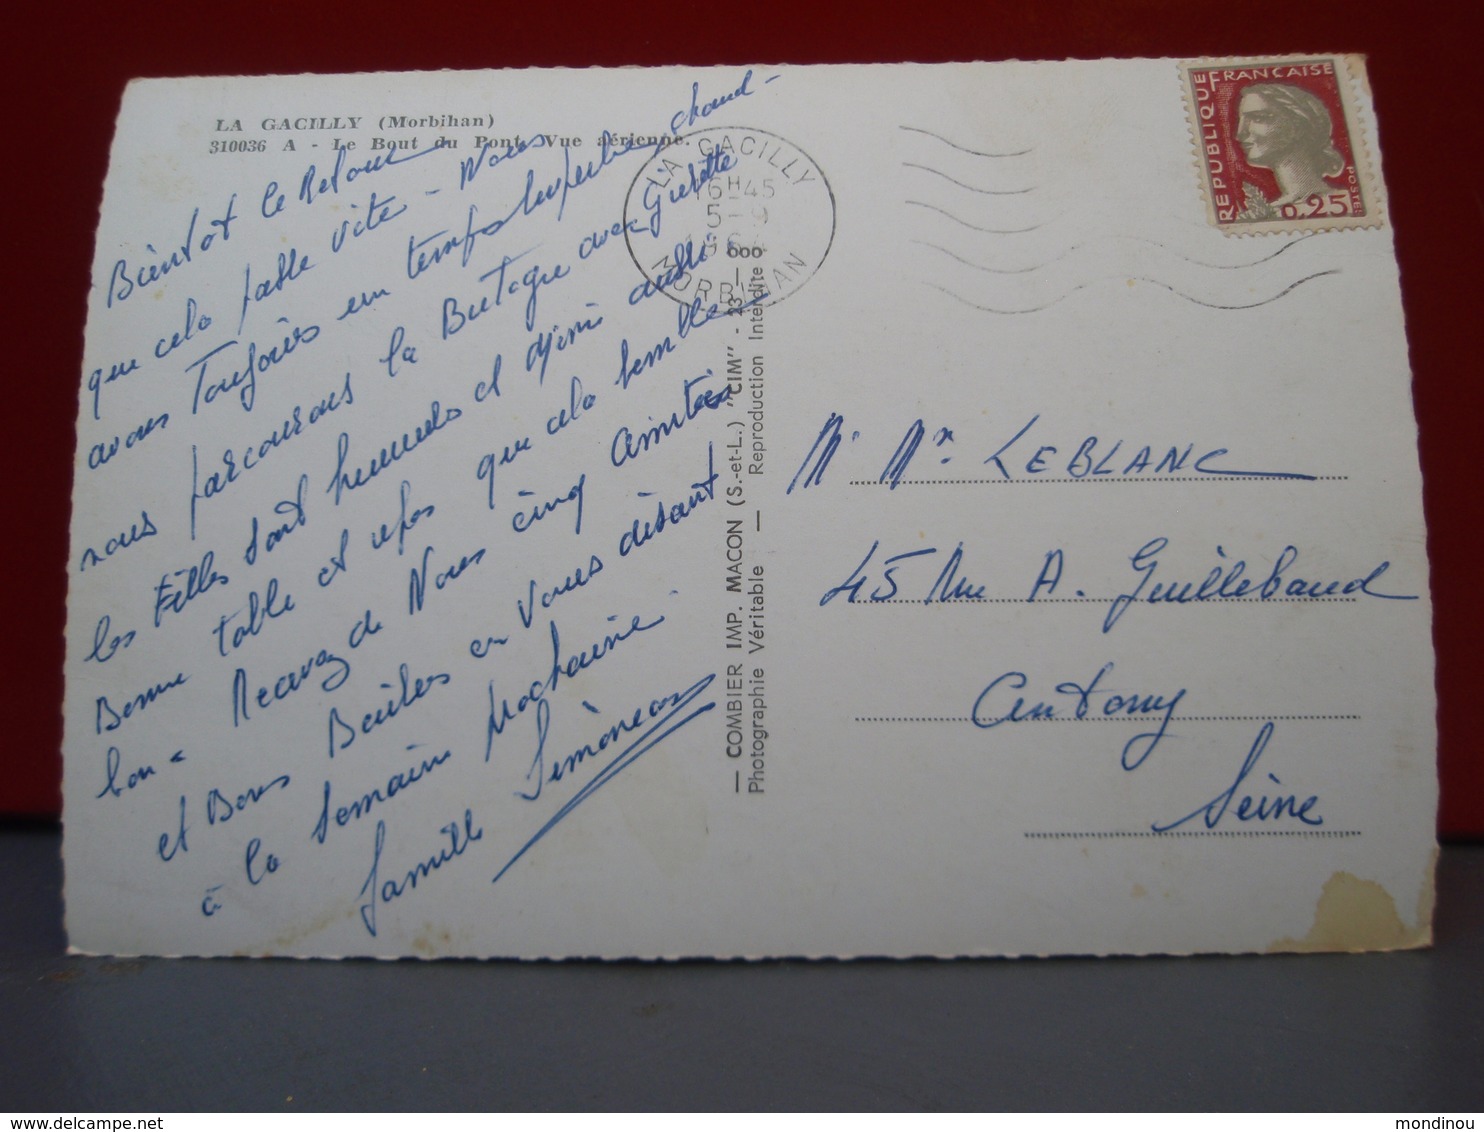 LA GACILLY (Morbihan)
310036 A - Le Bout du Pont. Vue aérienne.
Bientot le Retour
que cela passe vite - Nous
avons Toujours un temps superbe chaud -
nous parcourons la Bretagne avec Ginette
les Filles sont heureuses et Mimi aussi.
Bonne table et repos que cela semble
bon - Recevez de Nous cinq Amitiés
et Bons Baisers en vous disant
à la semaine prochaine.
famille Simoneau
LA GACILLY
16H45
5-9
MORBIHAN
— COMBIER IMP. MACON (S.-et-L.) "CIM" - 23 -
Photographie Véritable — Reproduction Interdite
RÉPUBLIQUE FRANÇAISE
POSTES
0,25
Mr Mme LEBLANC
45 Rue A. Guillebaud
Antony
Seine
mondinou